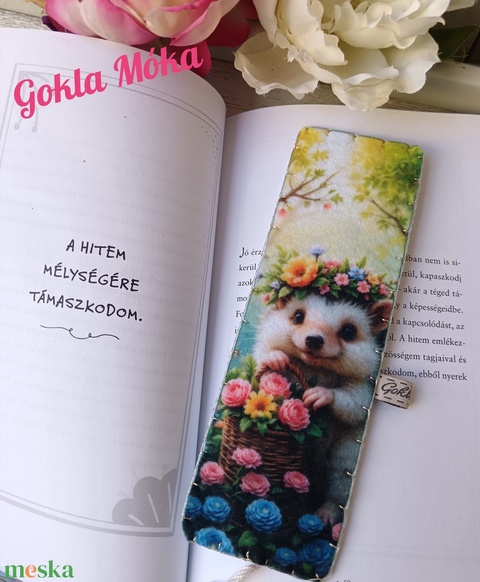 Gokla Móka
A HITEM
MÉLYSÉGÉRE
TÁMASZKODOM.
Jó érz
kerül
azok
mo
iban nem is si-
tül, kapaszkodj
– akár a téged tá-
y a képességeidbe.
d a kapcsolódást, az
ól. A hitem emlékez-
zösségem tagjaival és
szkodom, ebből nyerek
Gokl
meska